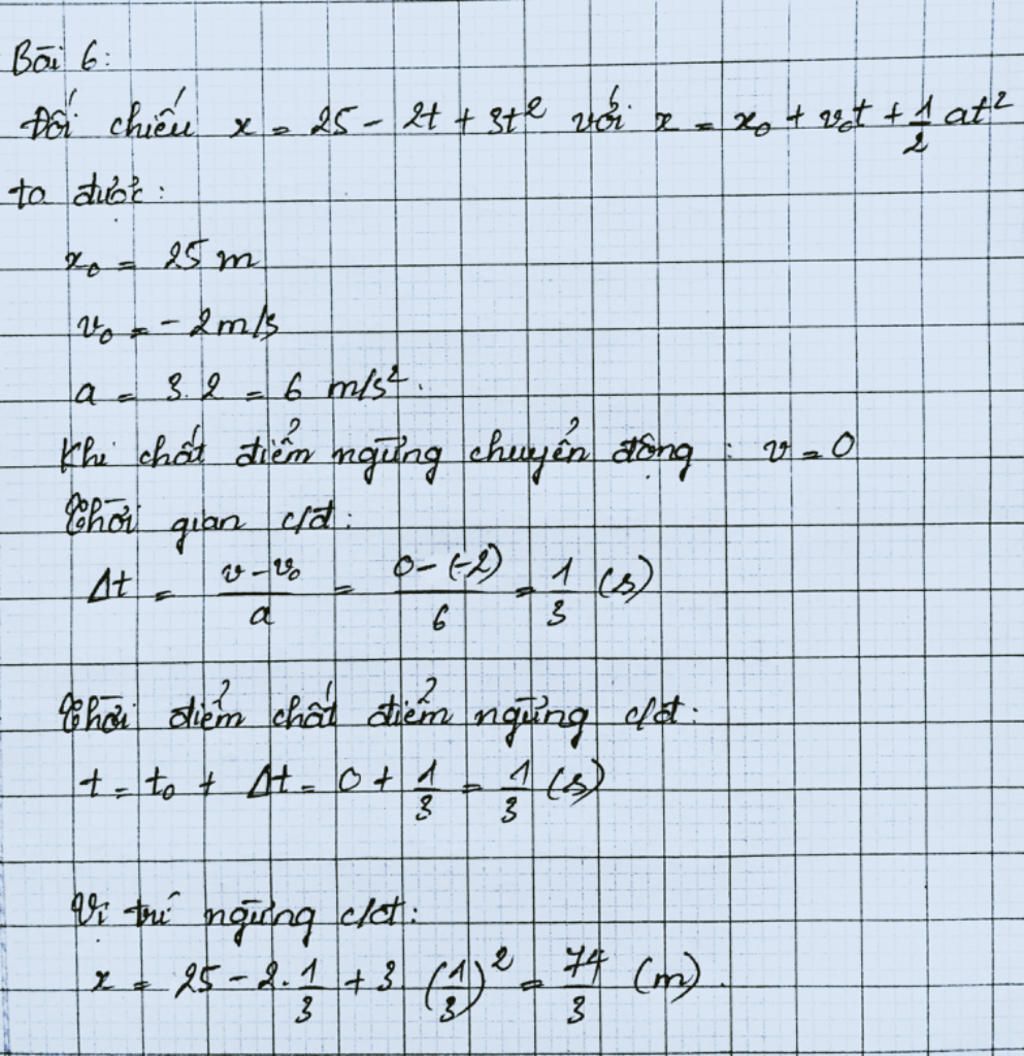 Bài 6:
Đối chiếu x = 25 - 2t + 3t² với x = x₀ + v₀t + 1/2 at²
ta được:
x₀ = 25 m
v₀ = - 2 m/s
a = 3.2 = 6 m/s².
Khi chất điểm ngừng chuyển động : v = 0
Thời gian c/đ:
Δt = (v - v₀)/a = (0 - (-2))/6 = 1/3 (s)
Thời điểm chất điểm ngừng c/đ:
t = t₀ + Δt = 0 + 1/3 = 1/3 (s)
Vị trí ngừng c/đ:
x = 25 - 2. 1/3 + 3 (1/3)² = 74/3 (m).